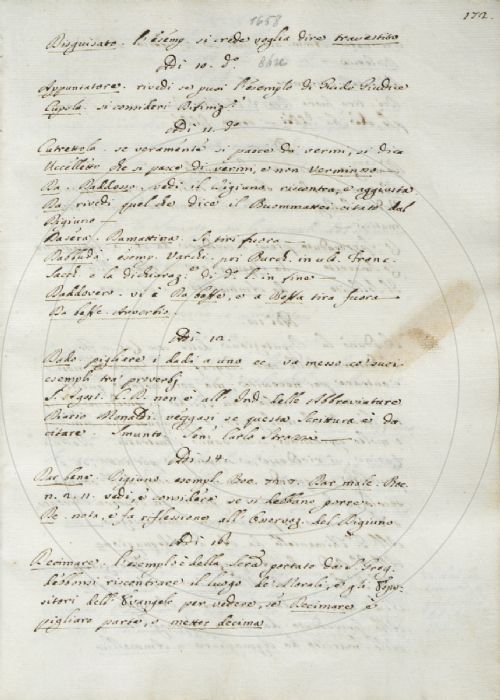 1658
172.
Disguisato. l'esemp. si vede voglia dire travestito
Adi 10. d.º
Appuntatore. rivedi se puoi l'esemplo di Guido Giudice
Cupola. si consideri
Adi 11. d.º
Cutrettola. se veramente si pasce di vermi, si dica
Uccelletto che si pasce di vermi, e non verminoso
Da. Daddosso. vedi il Rigiano riscontra, e aggiusta
Da, rivedi quel che dice il Buommattei citato dal
Rigiano
Dasera. Damattina. Si tiri fuora
esemp. Varchi. poi Burch. in ult. Franc.
Sacch. e la dichiaraz.e di d.º l. in fine
Daddovero. vi è Da beffe, e a Beffa tira fuora
Da beffe. Avverbio.
Adi 12.
Dado. pigliare i dadi a uno ec. va messo co' suoi
esempli tra' proverbj
S. Agost. C. D. non è all' Ind. delle Abbreviature
Diario Monaldi. veggasi se questa Scrittura è da
citare. Smunto. Sen. Carlo Strozzi
Adi 14.
Dar bene. Rigiano. esempl. Boc. Dar male. Boc.
n. 2. 11. vedi, e considera se si debbano porre
De. nota, e fa riflessione all' Osservaz. del Rigiano
Adi 16.
Decimare. l'esemplo è della portato da S. Greg.
debbonsi riscontrare il luogo de' Morali, e gli Espo-
sitori dell' Evangelo per vedere, se Decimare è
pigliare parte, o metter decima